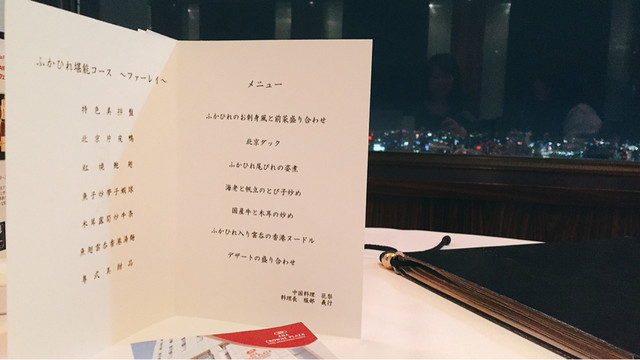 ふかひれ堪能コース ～ファーレイ～
特色美拼盤
北京片皮鴨
紅燒鮑翅
魚子炒帶子蝦球
木耳露筍炒牛条
魚翅雲呑香港湯麺
美式美甜品
メニュー
ふかひれのお刺身風と前菜盛り合わせ
北京ダック
ふかひれ尾びれの姿煮
海老と帆立のとび子炒め
国産牛と木耳の炒め
ふかひれ入り雲呑の香港ヌードル
デザートの盛り合わせ
中国料理 花梨
料理長 服部 義行
ANA
CROWNE PLAZA